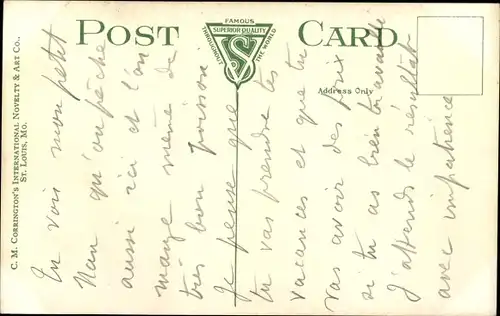 POST CARD
FAMOUS
SUPERIOR QUALITY
THROUGHOUT THE WORLD
S
Address Only
C. M. CORRINGTON'S INTERNATIONAL NOVELTY & ART CO.,
ST. LOUIS, MO.
Tu vois mon petit
Nan qu'on pêche
aussi ici et l'on
mange même de
très bon poisson
Je pense que
tu vas prendre tes
vacances et que tu
vas avoir des prix
si tu as bien travaillé
J'attends le résultat
avec impatience